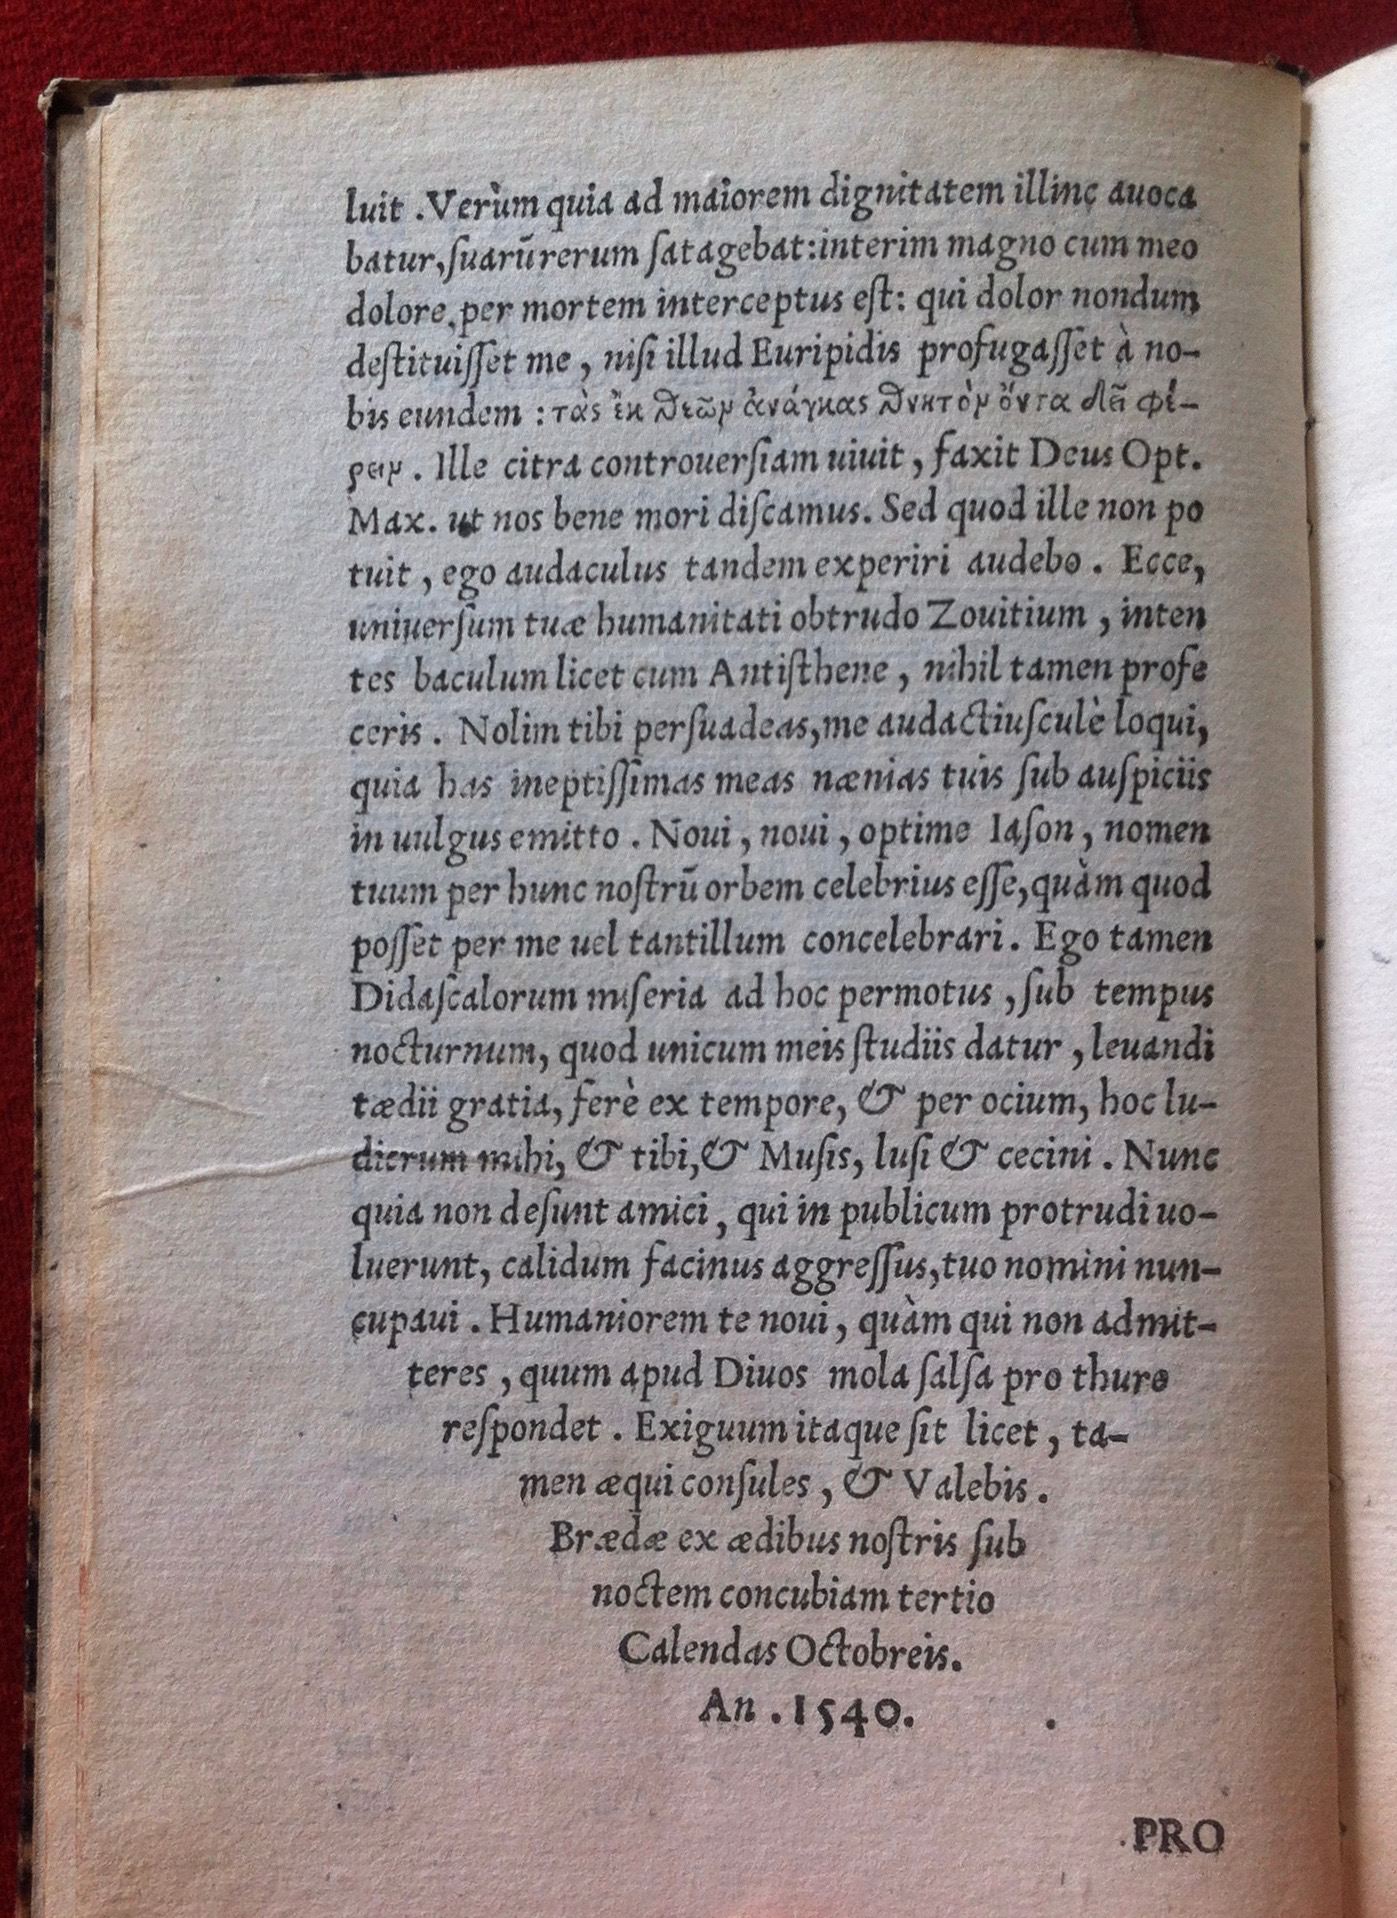 luit . Verùm quia ad maiorem dignitatem illinc auoca
batur, ſuarū rerum ſatagebat: interim magno cum meo
dolore, per mortem interceptus eſt: qui dolor nondum
deſtituiſſet me, niſi illud Euripidis profugaſſet à no-
bis eundem : τὰς ἐκ θεῶν ἀνάγκας θνητὸν ὄντα δεῖ φέ-
ρειν . Ille citra controuerſiam uiuit, faxit Deus Opt.
Max. ut nos bene mori diſcamus. Sed quod ille non po
tuit, ego audaculus tandem experiri audebo . Ecce,
uniuerſum tuæ humanitati obtrudo Zouitium, inten
tes baculum licet cum Antiſthene, nihil tamen profe
ceris . Nolim tibi perſuadeas, me audactiuſculè loqui,
quia has ineptiſſimas meas nænias tuis ſub auſpiciis
in uulgus emitto . Noui, noui, optime Iaſon, nomen
tuum per hunc noſtrū orbem celebrius eſſe, quàm quod
poſſet per me uel tantillum concelebrari . Ego tamen
Didaſcalorum miſeria ad hoc permotus, ſub tempus
nocturnum, quod unicum meis ſtudiis datur, leuandi
tædii gratia, ferè ex tempore, & per ocium, hoc lu-
dicrum mihi, & tibi, & Muſis, luſi & cecini . Nunc
quia non deſunt amici, qui in publicum protrudi uo-
luerunt, calidum facinus aggreſſus, tuo nomini nun-
cupaui . Humaniorem te noui, quàm qui non admit-
teres, quum apud Diuos mola ſalſa pro thure
reſpondet . Exiguum itaque ſit licet, ta-
men æqui conſules, & Valebis .
Brædæ ex ædibus noſtris ſub
noctem concubiam tertio
Calendas Octobreis.
An . 1540.
PRO